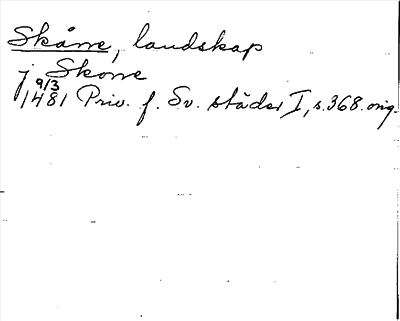 Skåne, landskap
j Skone
9/3
1481 Priv. f. Sv. städer I, s. 368. orig.